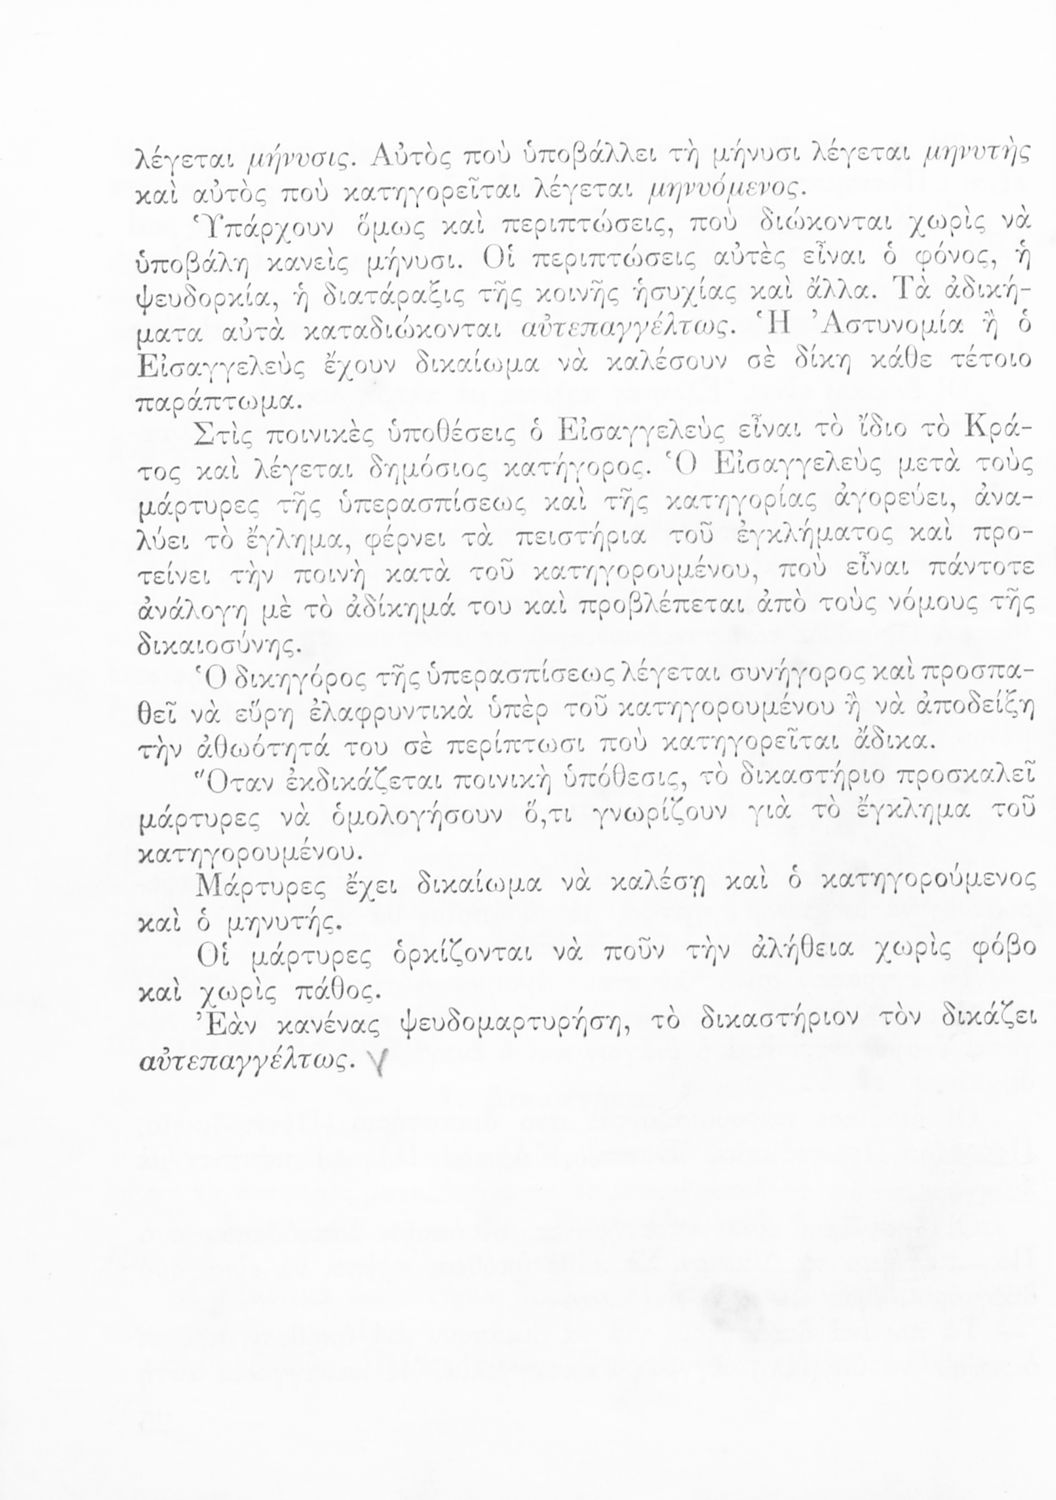 λέγεται μήνυσις. Αὐτὸς ποὺ ὑποβάλλει τὴ μήνυσι λέγεται μηνυτὴς
καὶ αὐτὸς ποὺ κατηγορεῖται λέγεται μηνυόμενος.
Ὑπάρχουν ὅμως καὶ περιπτώσεις, ποὺ διώκονται χωρὶς νὰ
ὑποβάλη κανεὶς μήνυσι. Οἱ περιπτώσεις αὐτὲς εἶναι ὁ φόνος, ἡ
ψευδορκία, ἡ διατάραξις τῆς κοινῆς ἡσυχίας καὶ ἄλλα. Τὰ ἀδική-
ματα αὐτὰ καταδιώκονται αὐτεπαγγέλτως. Ἡ Ἀστυνομία ἢ ὁ
Εἰσαγγελεὺς ἔχουν δικαίωμα νὰ καλέσουν σὲ δίκη κάθε τέτοιο
παράπτωμα.
Στὶς ποινικὲς ὑποθέσεις ὁ Εἰσαγγελεὺς εἶναι τὸ ἴδιο τὸ Κρά-
τος καὶ λέγεται δημόσιος κατήγορος. Ὁ Εἰσαγγελεὺς μετὰ τοὺς
μάρτυρες τῆς ὑπερασπίσεως καὶ τῆς κατηγορίας ἀγορεύει, ἀνα-
λύει τὸ ἔγλημα, φέρνει τὰ πειστήρια τοῦ ἐγκλήματος καὶ προ-
τείνει τὴν ποινὴ κατὰ τοῦ κατηγορουμένου, ποὺ εἶναι πάντοτε
ἀνάλογη μὲ τὸ ἀδίκημά του καὶ προβλέπεται ἀπὸ τοὺς νόμους τῆς
δικαιοσύνης.
Ὁ δικηγόρος τῆς ὑπερασπίσεως λέγεται συνήγορος καὶ προσπα-
θεῖ νὰ εὕρη ἐλαφρυντικὰ ὑπὲρ τοῦ κατηγορουμένου ἢ νὰ ἀποδείξη
τὴν ἀθωότητά του σὲ περίπτωσι ποὺ κατηγορεῖται ἄδικα.
Ὅταν ἐκδικάζεται ποινικὴ ὑπόθεσις, τὸ δικαστήριο προσκαλεῖ
μάρτυρες νὰ ὁμολογήσουν ὅ,τι γνωρίζουν γιὰ τὸ ἔγκλημα τοῦ
κατηγορουμένου.
Μάρτυρες ἔχει δικαίωμα νὰ καλέση καὶ ὁ κατηγορούμενος
καὶ ὁ μηνυτής.
Οἱ μάρτυρες ὁρκίζονται νὰ ποῦν τὴν ἀλήθεια χωρὶς φόβο
καὶ χωρὶς πάθος.
Ἐὰν κανένας ψευδομαρτυρήση, τὸ δικαστήριον τὸν δικάζει
αὐτεπαγγέλτως.